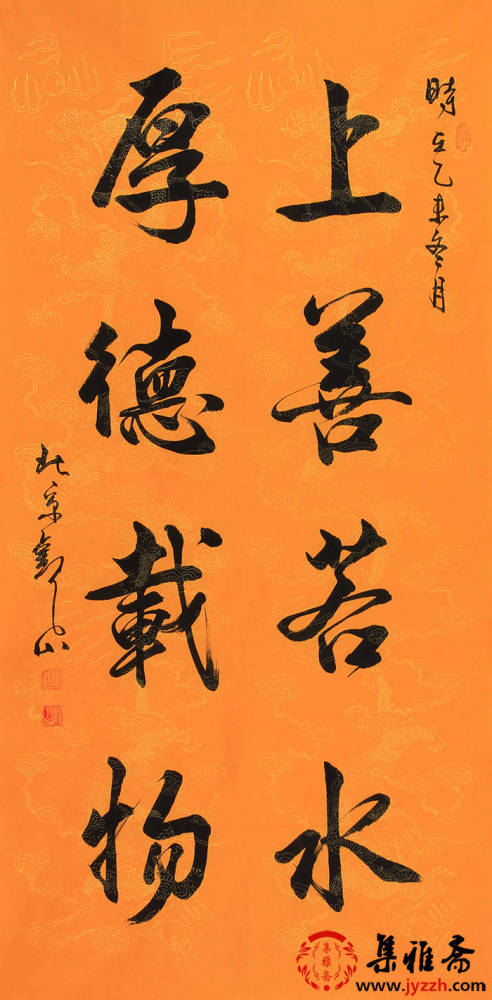 時在乙未冬月
上善若水
厚德載物
北京劉山
集雅斋
集雅斋
www.jyzzh.com